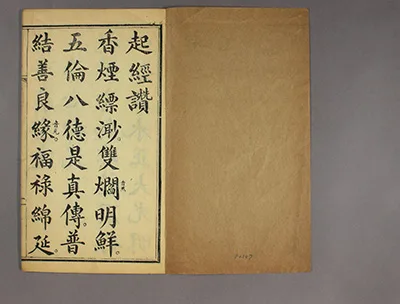 起經讚
香煙縹渺雙爓明鮮。
五倫八德是真傳。普
結善良緣。福祿綿延。